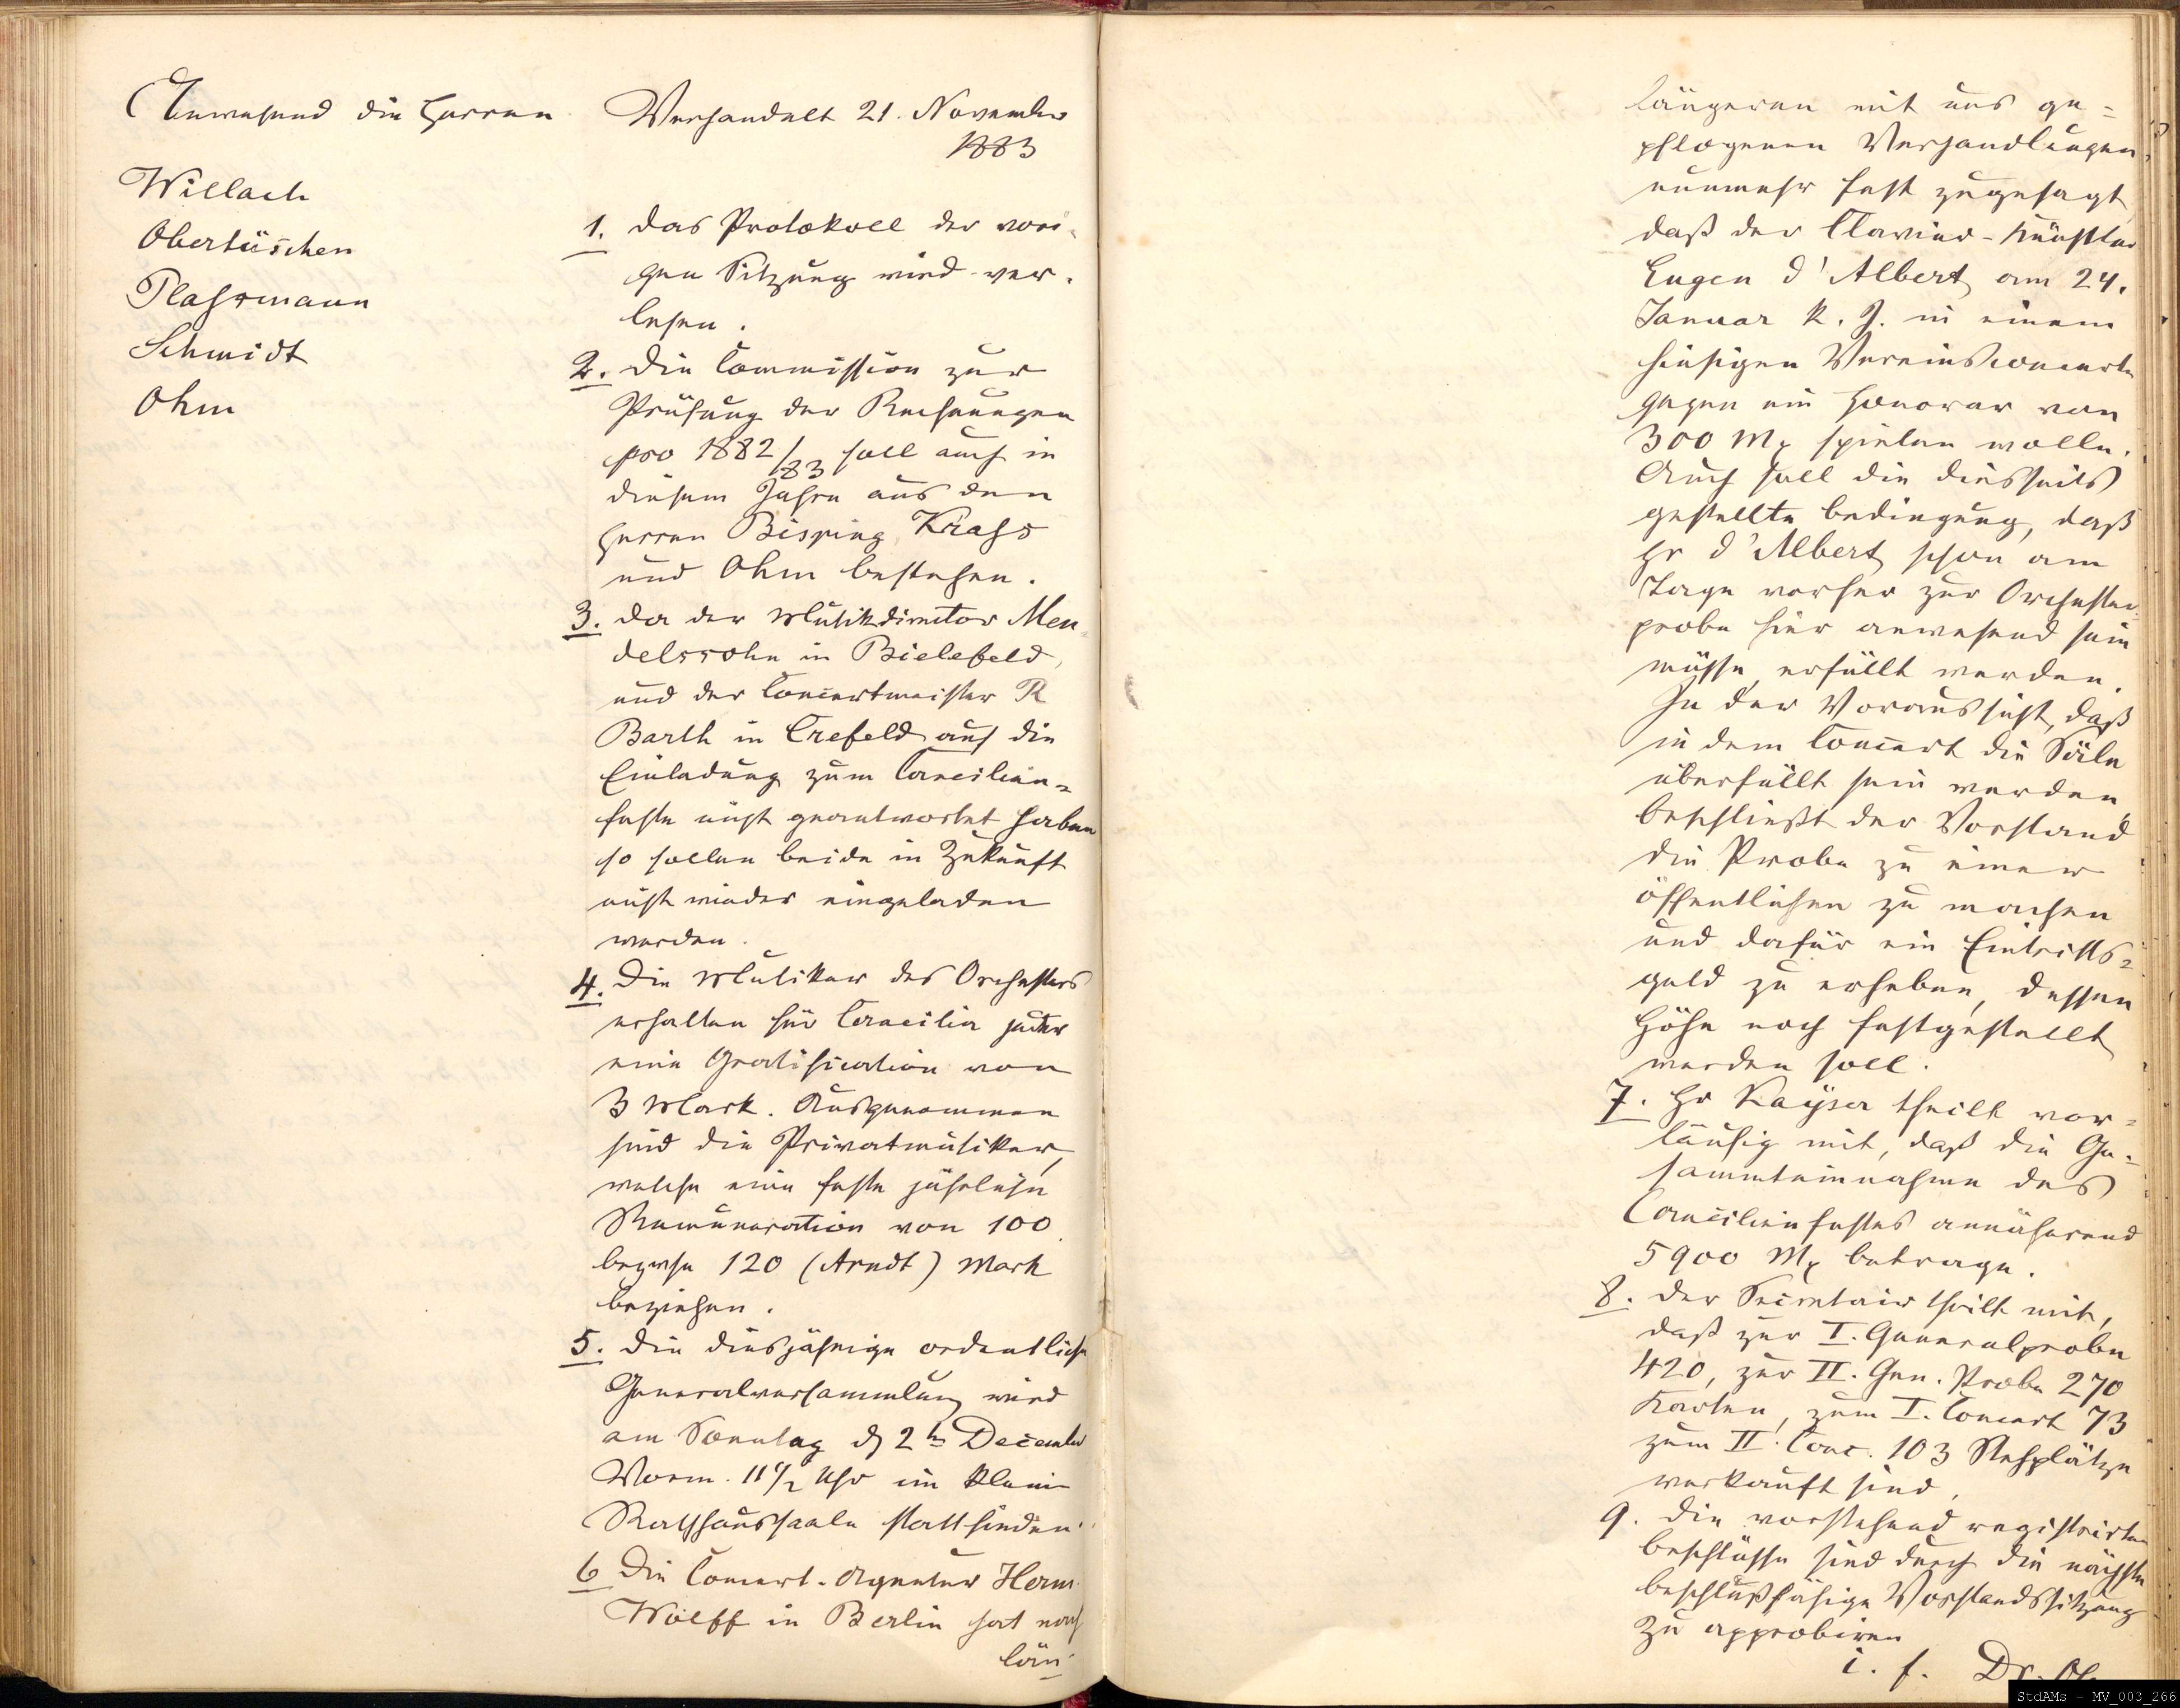 Anwesend die Herren
Willach
Obertüschen
Plassmann
Schmidt
Ohm
Verhandelt 21. November
1883
1. Das Protokoll der vori-
gen Sitzung wird ver-
lesen.
2. Die Commission zur
Prüfung der Rechnungen
pro 1882/83 soll auch in
diesem Jahre aus den
Herren Bisping, Krass
und Ohm bestehen.
3. Da der Musikdirector Men-
delssohn in Bielefeld,
und der Concertmeister R
Barth in Crefeld auf die
Einladung zum Caecilien-
feste nicht geantwortet haben
so sollen beide in Zukunft
nicht wieder eingeladen
werden.
4. Die Musiker des Orchesters
erhalten für Caecilia jeder
eine Gratification von
3 Mark. Ausgenommen
sind die Privatmusiker,
welche eine feste jährliche
Remuneration von 100
bezwse 120 (Arndt) Mark
beziehen.
5. Die diesjährige ordentliche
Generalversammlung wird
am Sonntag d. 2ten December
Vorm. 11 1/2 Uhr im kleinen
Rathhaussaale stattfinden.
6 Die Concert-Agentur Herm.
Wolff in Berlin hat nach
län-
längeren mit uns ge-
pflogenen Verhandlungen,
nunmehr fest zugesagt,
daß der Clavier-Künstler
Eugen d'Albert am 24.
Januar k. J. in einem
hiesigen Vereinsconcerte
gegen ein Honorar von
300 Mk spielen wolle.
Auch soll die diesseits
gestellte Bedingung, daß
Hr d'Albert schon am
Tage vorher zur Orchester-
probe hier anwesend sein
müsse, erfüllt werden.
In der Voraussicht, daß
in dem Concert die Säle
überfüllt sein werden,
beschließt der Vorstand
die Probe zu einer
öffentlichen zu machen
und dafür ein Eintritts-
geld zu erheben, dessen
Höhe noch festgestellt
werden soll.
7. Hr Kayser theilt vor-
läufig mit, daß die Ge-
sammteinnahme des
Caecilienfestes annähernd
5900 Mk betrage.
8. Der Secretair theilt mit,
daß zur I. Generalprobe
420, zur II. Gen. Probe 270
Karten, zum I. Concert 73
zum II. Conc. 103 Stehplätze
verkauft sind.
9. Die vorstehend registrirten
Beschlüsse sind durch die nächste
beschlußfähige Vorstandssitzung
zu approbiren
i. f. Dr. Oh
StdAMs - MV_003_266